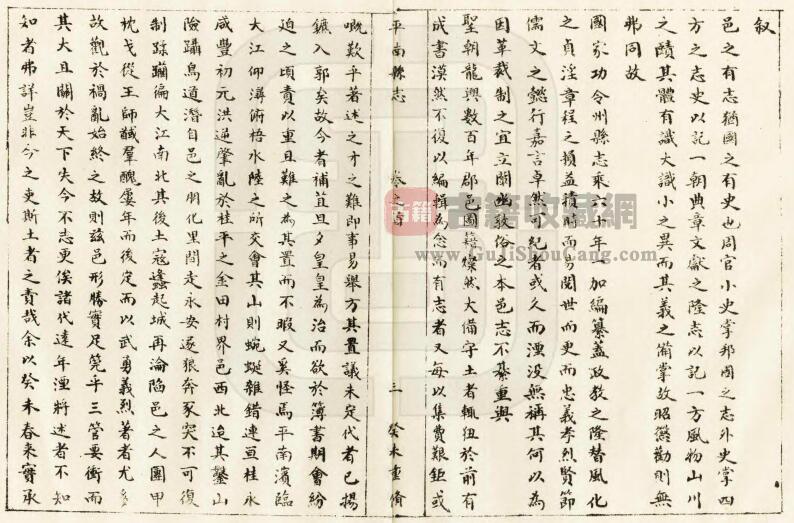 叙
邑之有志猶國之有史也周官小史掌邦國之志外史掌四
方之志史以記一朝典章文獻之隆志以記一方風物山川
之賾其體有識大識小之異而其義之備掌故昭懲勸則無
弗同故
國家功令州縣志乘六十年一加編纂蓋政教之隆替風化
之貞淫章程之損益積時而易閱世而更而忠義孝烈賢節
儒文之懿行嘉言卓然可紀者或久而湮沒無稱其何以為
因革裁制之宜立闡幽敦俗之本邑志不綦重與
聖朝龍興數百年郡邑圖籍燦然大備守土者輒狃於前有
成書漠然不復以編輯為念而有志者又每以集費艱鉅或
平南縣志
卷之首
三
癸未重脩
嘅歎乎著述之才之難即事易舉方其置議未定代者已揚
鑣入郭矣故今者補苴旦夕皇皇為治而欲於簿書期會紛
迫之頃責以重且難之為其置而不暇又奚怪焉平南濱臨
大江仰潯俯梧水陸之所交會其山則蜿蜒雜錯連亘桂永
咸豐初元洪逆肇亂於桂平之金田村界邑西北迨其鑿山
險躡鳥道潛自邑之朋化里閒走永安逐狼奔豕突不可復
制蹂躪徧大江南北其後土寇蠭起城再淪陷邑之人團甲
枕戈從王師馘羣醜屢年而後定而以武勇義烈著者尤多
故觀於禍亂始終之故則茲邑形勝實足筦乎三管要衝而
其大且關於天下失今不志更俟諸代遠年湮將述者不知
知者弗詳豈非今之吏斯土者之責哉余以癸未春來實承
古籍
古籍收藏网
www.GuJiShouCang.com